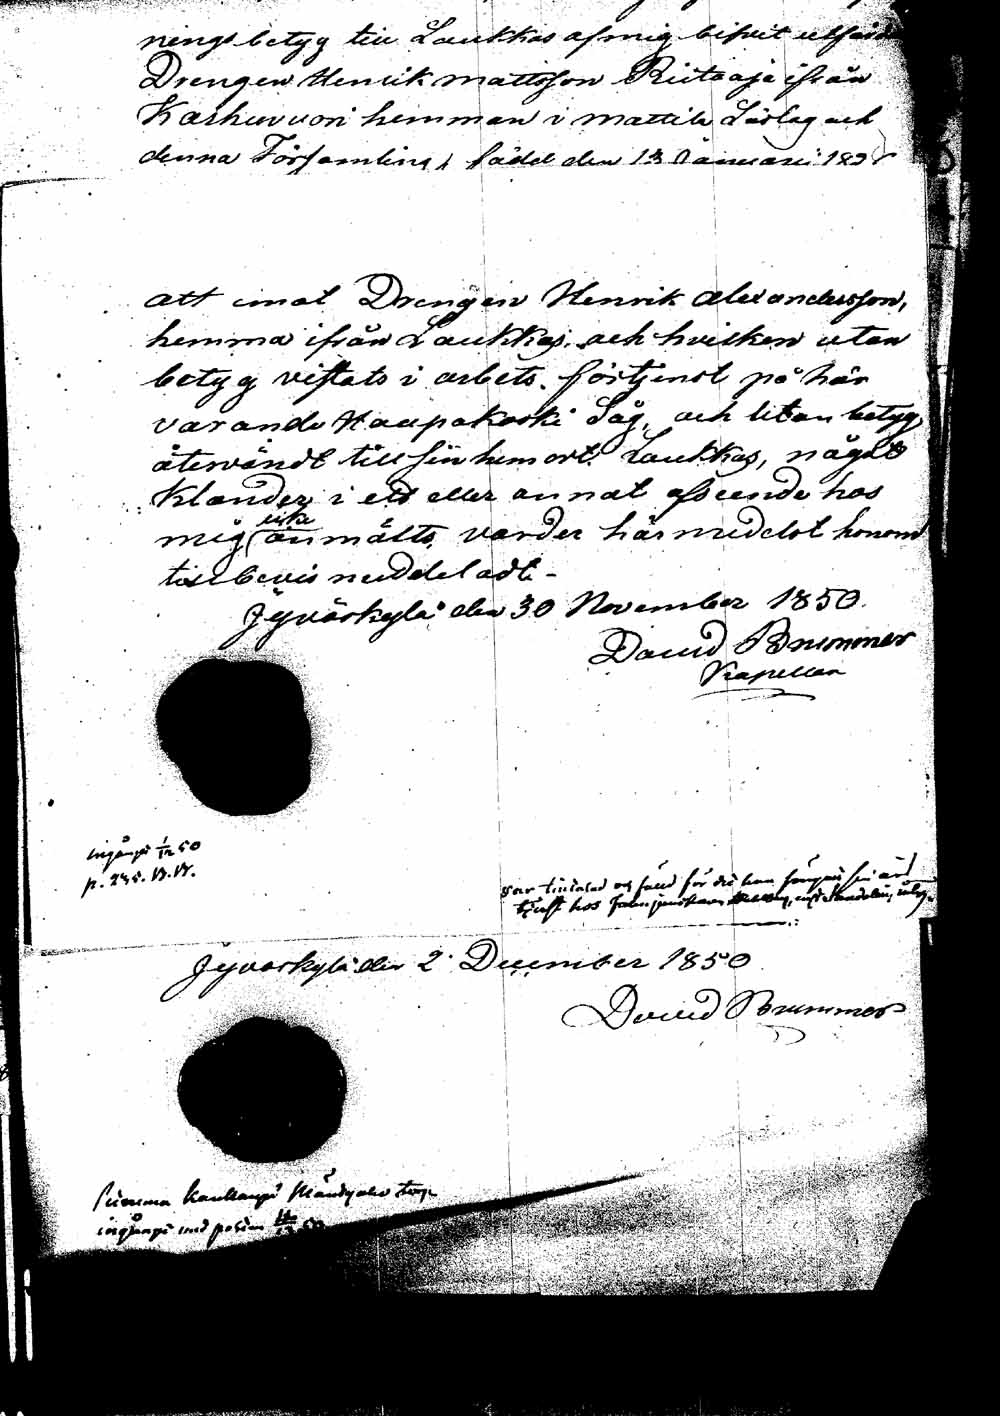 nings betyg till Laukkas af mig blifvit utfärd
Drengen Henrik Mattsson Riitaaja ifrån
Kaskuvuori hemman i Mattila Lärlag och
denna Församling, född den 13 Januari 182
att emot Drengen Henrik Alexandersson,
hemma ifrån Laukkas, och hvilken utan
betyg vistats i arbets förtjenst på här
varande Haapakoski Såg, och utan betyg
återvändt till sin hemort Laukkas, något
Klander i ett eller annat afseende hos
mig icke anmälts, varder härmedelst honom
till bevis meddeladt.-
Jyväskylä den 30 November 1850.
David Brummer
Kapellan
ingångit 1/12 50
p. 235.
tjenst hos
Jyväskylä den 2 December 1850
David Brummer
ingångit med posten 50